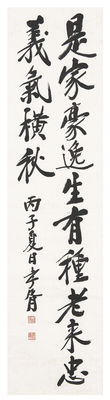 是家豪逸生有種老來忠
義氣橫秋
丙子夏日孝胥